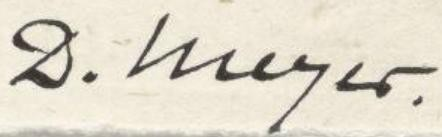 D. Meyer.